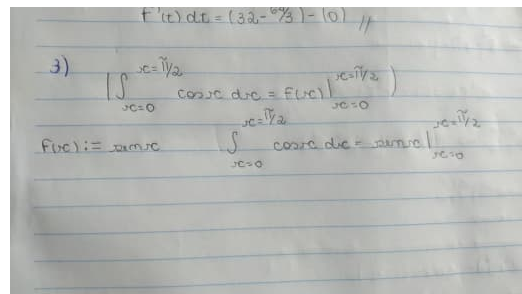 f'(t) dt = (32 - 64/3) - (0) //
3) ( ∫_{x=0}^{x=π/2} cosx dx = f(x) |_{x=0}^{x=π/2} )
f(x) := senx ∫_{x=0}^{x=π/2} cosx dx = senx |_{x=0}^{x=π/2}